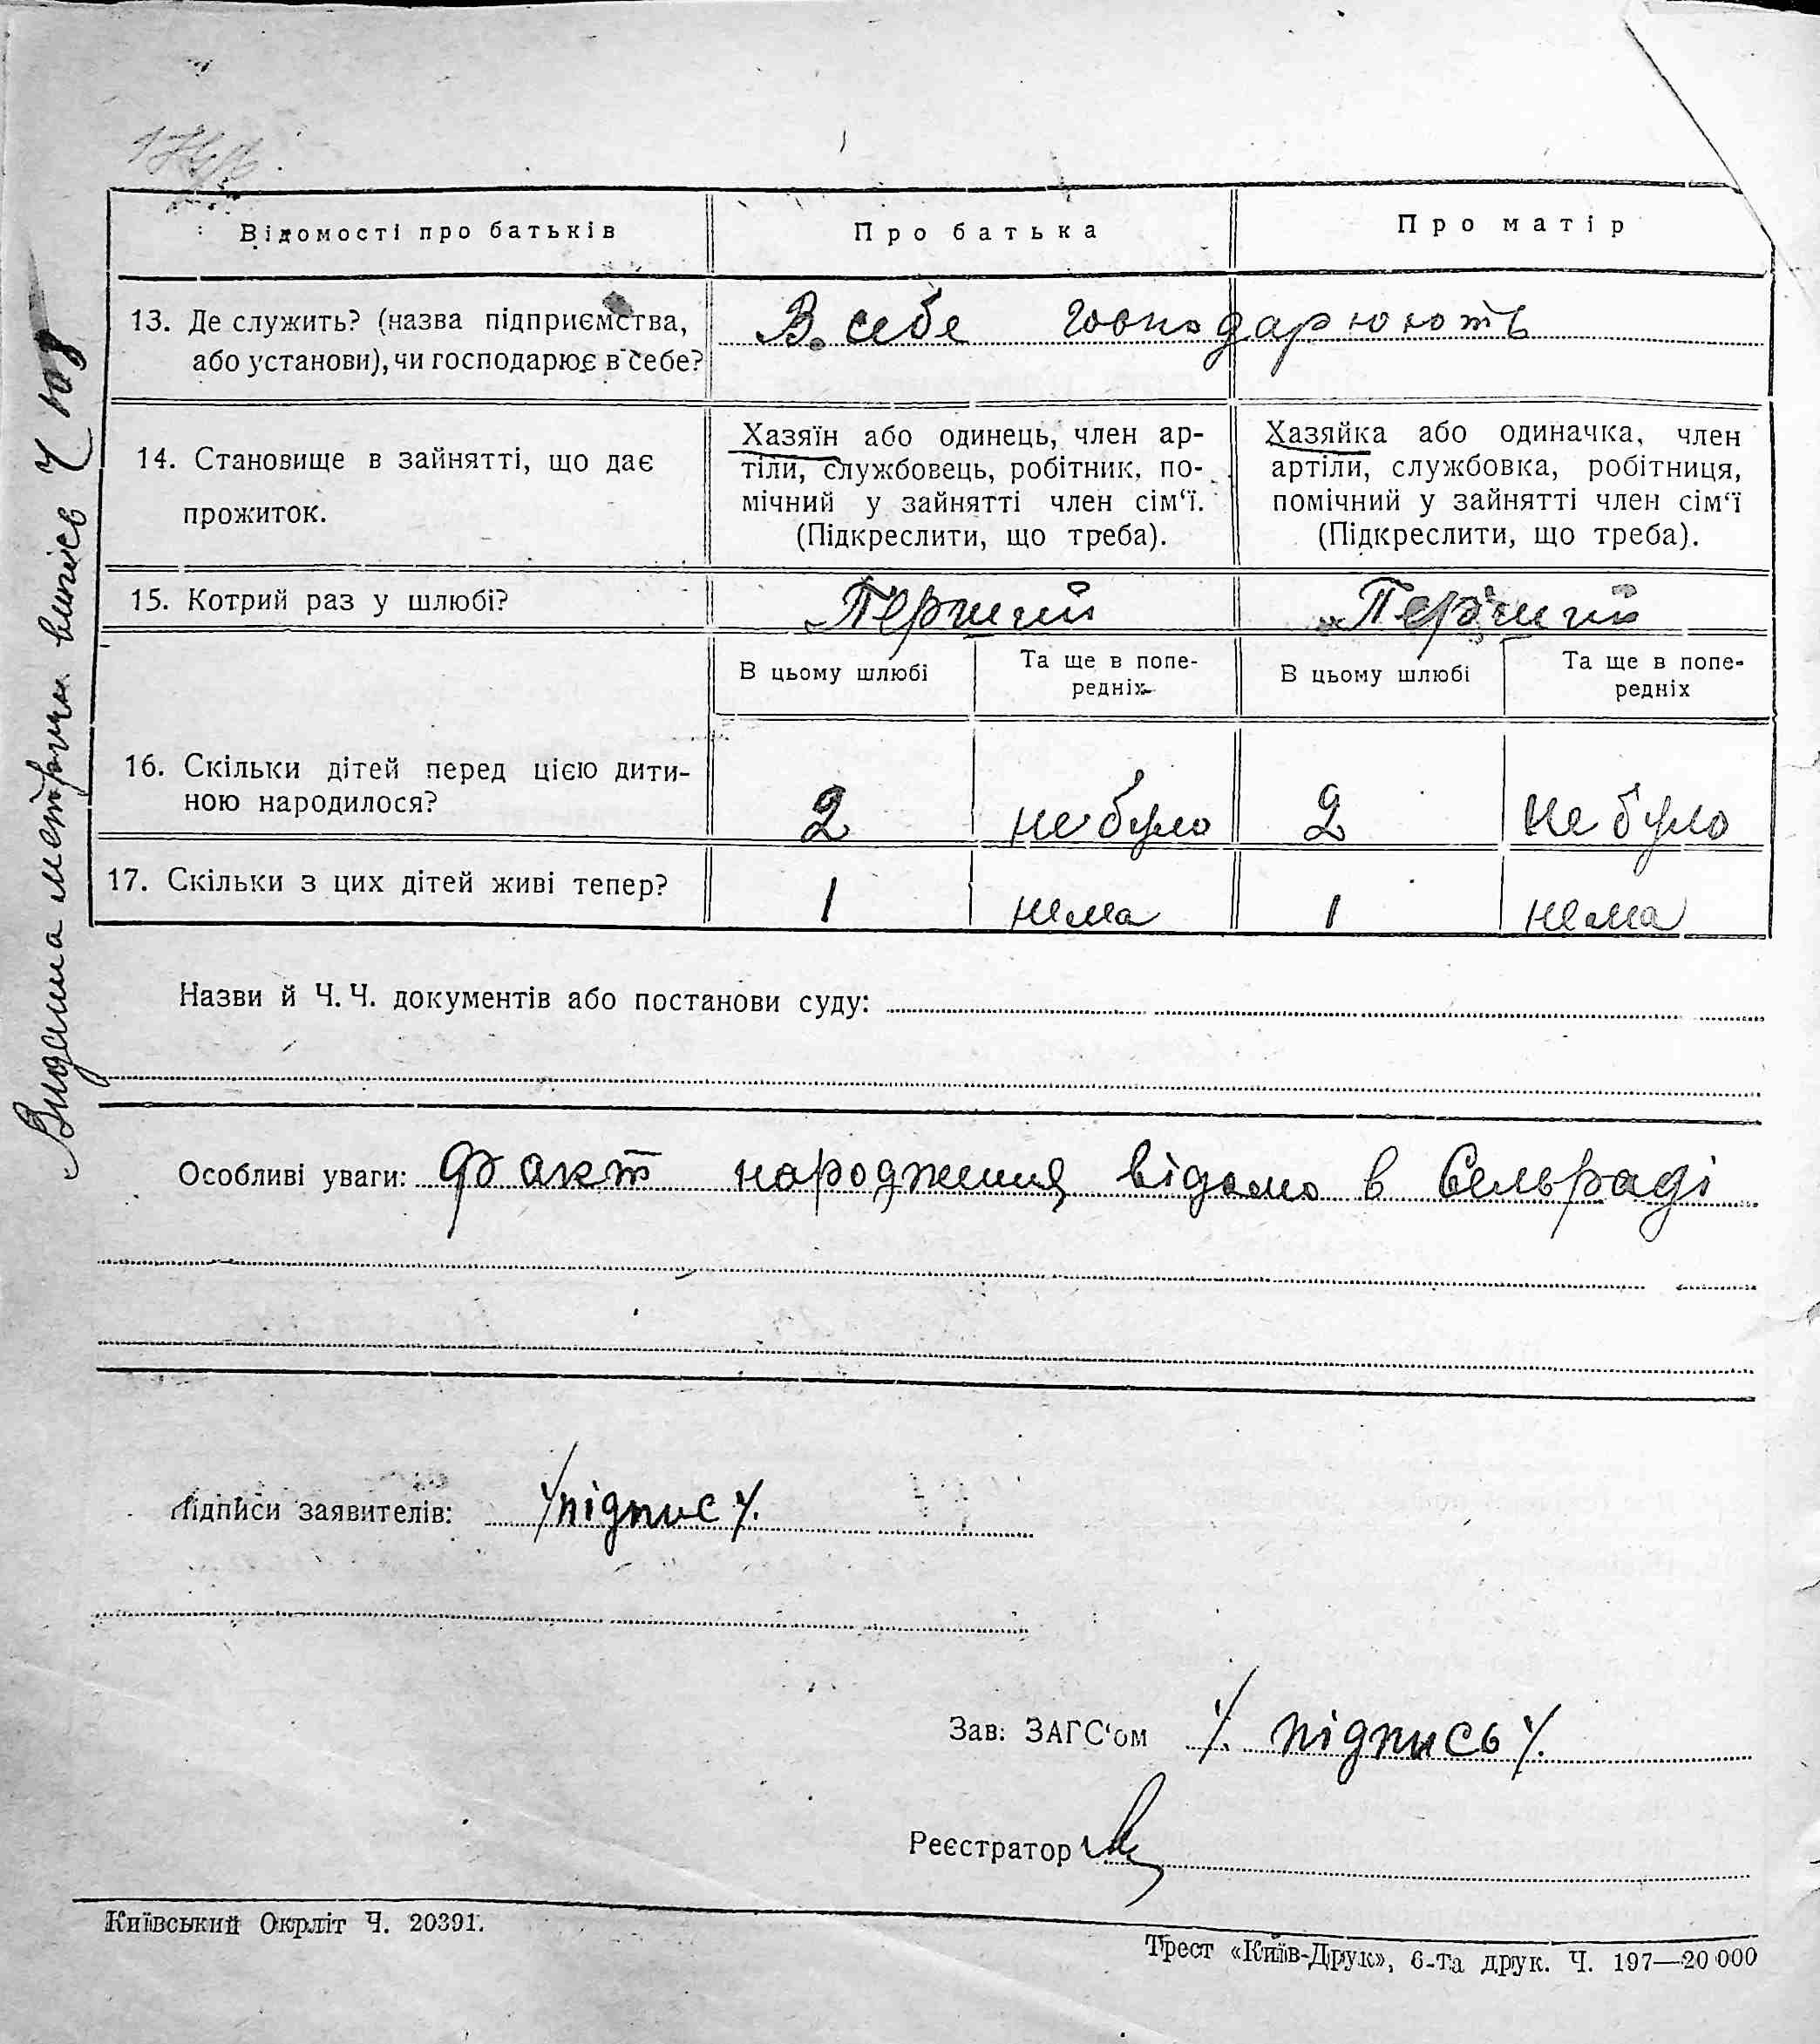 Відомості про батьків
Про батька
Про матір
13. Де служить? (назва підприємства,
або установи), чи господарює в себе?
В себе господарюють
14. Становище в зайнятті, що дає
прожиток.
Хазяїн або одинець, член ар-
тіли, службовець, робітник, по-
мічний у зайнятті член сім‘ї.
(Підкреслити, що треба).
Хазяйка або одиначка, член
артіли, службовка, робітниця,
помічний у зайнятті член сім‘ї
(Підкреслити, що треба).
15. Котрий раз у шлюбі?
Перший
Перший
В цьому шлюбі
Та ще в попе-
редніх
В цьому шлюбі
Та ще в попе-
редніх
16. Скільки дітей перед цією дити-
ною народилося?
2
не було
2
не було
17. Скільки з цих дітей живі тепер?
1
нема
1
нема
Видана метричн випись Ч 108
Назви й Ч. Ч. документів або постанови суду:
Особливі уваги: Факт народження відомо в Сельраді
Підписи заявителів: /підпис/.
Зав: ЗАГС‘ом /. підпись/.
Реєстратор
Київський Окрліт Ч. 20391.
Трест «Київ-Друк», 6-та друк. Ч. 197—20 000